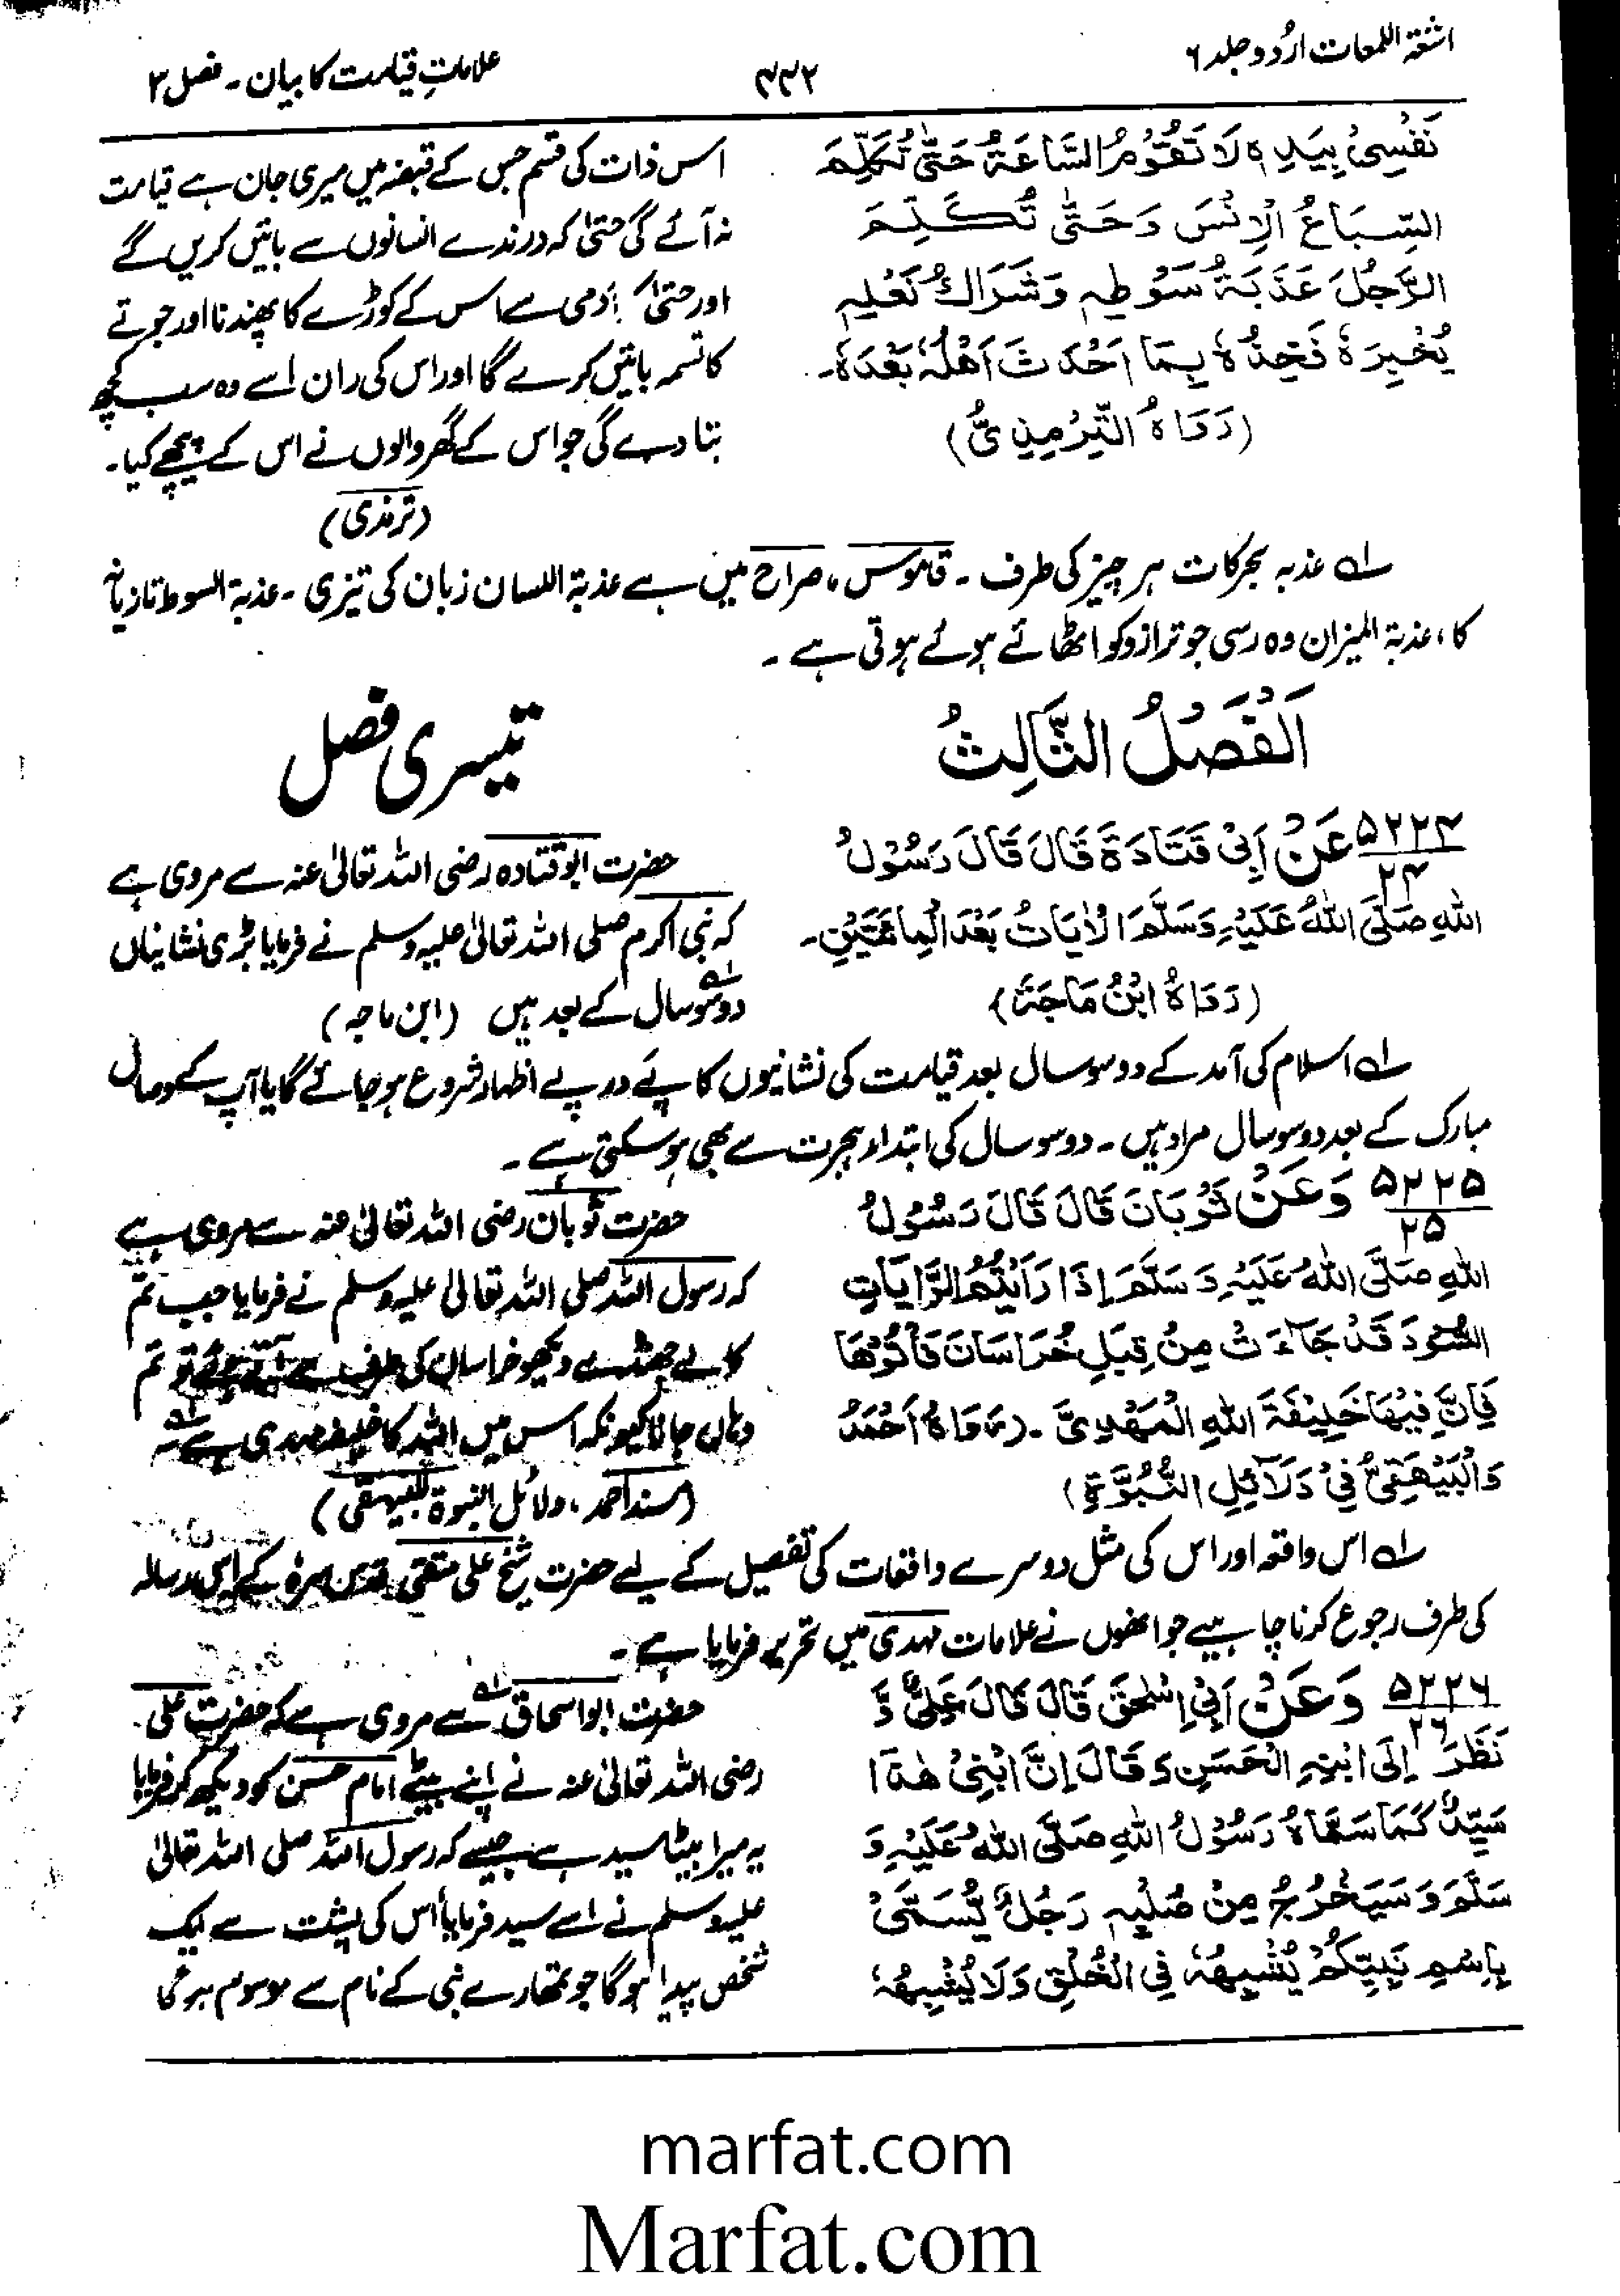 اشعۃ اللمعات اردو جلد ۶
۴۴۲
علاماتِ قیامت کا بیان۔ فصل ۳
نَفْسِىْ بِيَدِهٖ لَا تَقُوْمُ السَّاعَةُ حَتّٰى تُكَلِّمَ
السِّبَاعُ الْاِنْسَ وَحَتّٰى تُكَلِّمَ
الرَّجُلَ عَذَبَةُ سَوْطِهٖ وَشَرَاكُ نَعْلِهٖ
يُخْبِرَهٗ فَخِذُهٗ بِمَا اَحْدَثَ اَهْلُهٗ بَعْدَهٗ۔
(رَوَاهُ التِّرْمِذِىُّ)
اس ذات کی قسم جس کے قبضہ میں میری جان ہے قیامت
نہ آئے گی حتیٰ کہ درندے انسانوں سے باتیں کریں گے
اور حتیٰ کہ آدمی سے اس کے کوڑے کا پھندنا اور جوتے
کا تسمہ باتیں کرے گا اور اس کی ران اسے وہ سب کچھ
بتا دے گی جو اس کے گھر والوں نے اس کے پیچھے کیا۔
(ترمذی)
؎۱ عذبہ بحرکات ہر چیز کی طرف۔ قاموس، صراح میں ہے عذبۃ اللسان زبان کی تیزی۔ عذبۃ السوط تازیانہ
کا، عذبۃ المیزان وہ رسی جو ترازو کو اٹھائے ہوئے ہوتی ہے۔
اَلْفَصْلُ الثَّالِثُ
تیسری فصل
۵۲۲۴
۲۴
عَنْ اَبِىْ قَتَادَةَ قَالَ قَالَ رَسُوْلُ
اللهِ صَلَّى اللهُ عَلَيْهِ وَسَلَّمَ الْاٰيَاتُ بَعْدَ الْمِائَتَيْنِ۔
(رَوَاهُ ابْنُ مَاجَةَ)
حضرت ابوقتادہ رضی اللہ تعالیٰ عنہ سے مروی ہے
کہ نبی اکرم صلی اللہ تعالیٰ علیہ وسلم نے فرمایا بڑی نشانیاں
دو سو؎۱ سال کے بعد ہیں (ابن ماجہ)
؎۱ اسلام کی آمد کے دو سو سال بعد قیامت کی نشانیوں کا پے در پے اظہار شروع ہو جائے گا یا آپ کے وصال
مبارک کے بعد دو سو سال مراد ہیں۔ دو سو سال کی ابتداء ہجرت سے بھی ہو سکتی ہے۔
۵۲۲۵
۲۵
وَعَنْ ثَوْبَانَ قَالَ قَالَ رَسُوْلُ
اللهِ صَلَّى اللهُ عَلَيْهِ وَسَلَّمَ اِذَا رَاَيْتُمُ الرَّايَاتِ
السُّوْدَ قَدْ جَآءَتْ مِنْ قِبَلِ خُرَاسَانَ فَاْتُوْهَا
فَاِنَّ فِيْهَا خَلِيْفَةَ اللهِ الْمَهْدِىَّ۔ (رَوَاهُ اَحْمَدُ
وَالْبَيْهَقِىُّ فِىْ دَلَآئِلِ النُّبُوَّةِ)
حضرت ثوبان رضی اللہ تعالیٰ عنہ سے مروی ہے
کہ رسول اللہ صلی اللہ تعالیٰ علیہ وسلم نے فرمایا جب تم
کالے جھنڈے دیکھو خراسان کی طرف سے آتے ہوئے تو تم
وہاں جانا کیونکہ اس میں اللہ کا خلیفہ مہدی ہے؎۱
(مسند احمد، دلائل النبوۃ للبیہقی)
؎۱ اس واقعہ اور اس کی مثل دوسرے واقعات کی تفصیل کے لیے حضرت شیخ علی متقی قدس سرہ کے اس رسالہ
کی طرف رجوع کرنا چاہیے جو انھوں نے علامات مہدی میں تحریر فرمایا ہے۔
۵۲۲۶
۲۶
وَعَنْ اَبِىْ اِسْحٰقَ قَالَ قَالَ عَلِىٌّ وَّ
نَظَرَ اِلَى ابْنِهِ الْحَسَنِ وَقَالَ اِنَّ ابْنِىْ هٰذَا
سَيِّدٌ كَمَا سَمَّاهُ رَسُوْلُ اللهِ صَلَّى اللهُ عَلَيْهِ وَ
سَلَّمَ وَسَيَخْرُجُ مِنْ صُلْبِهٖ رَجُلٌ يُّسَمّٰى
بِاِسْمِ نَبِيِّكُمْ يُشْبِهُهٗ فِى الْخُلُقِ وَلَا يُشْبِهُهٗ
حضرت ابو اسحاق؎۱ سے مروی ہے کہ حضرت علی
رضی اللہ تعالیٰ عنہ نے اپنے بیٹے امام حسن کو دیکھ کر فرمایا
یہ میرا بیٹا سید ہے جیسے کہ رسول اللہ صلی اللہ تعالیٰ
علیہ وسلم نے اسے سید فرمایا اس کی پشت سے ایک
شخص پیدا ہوگا جو تمھارے نبی کے نام سے موسوم ہوگا
marfat.com
Marfat.com